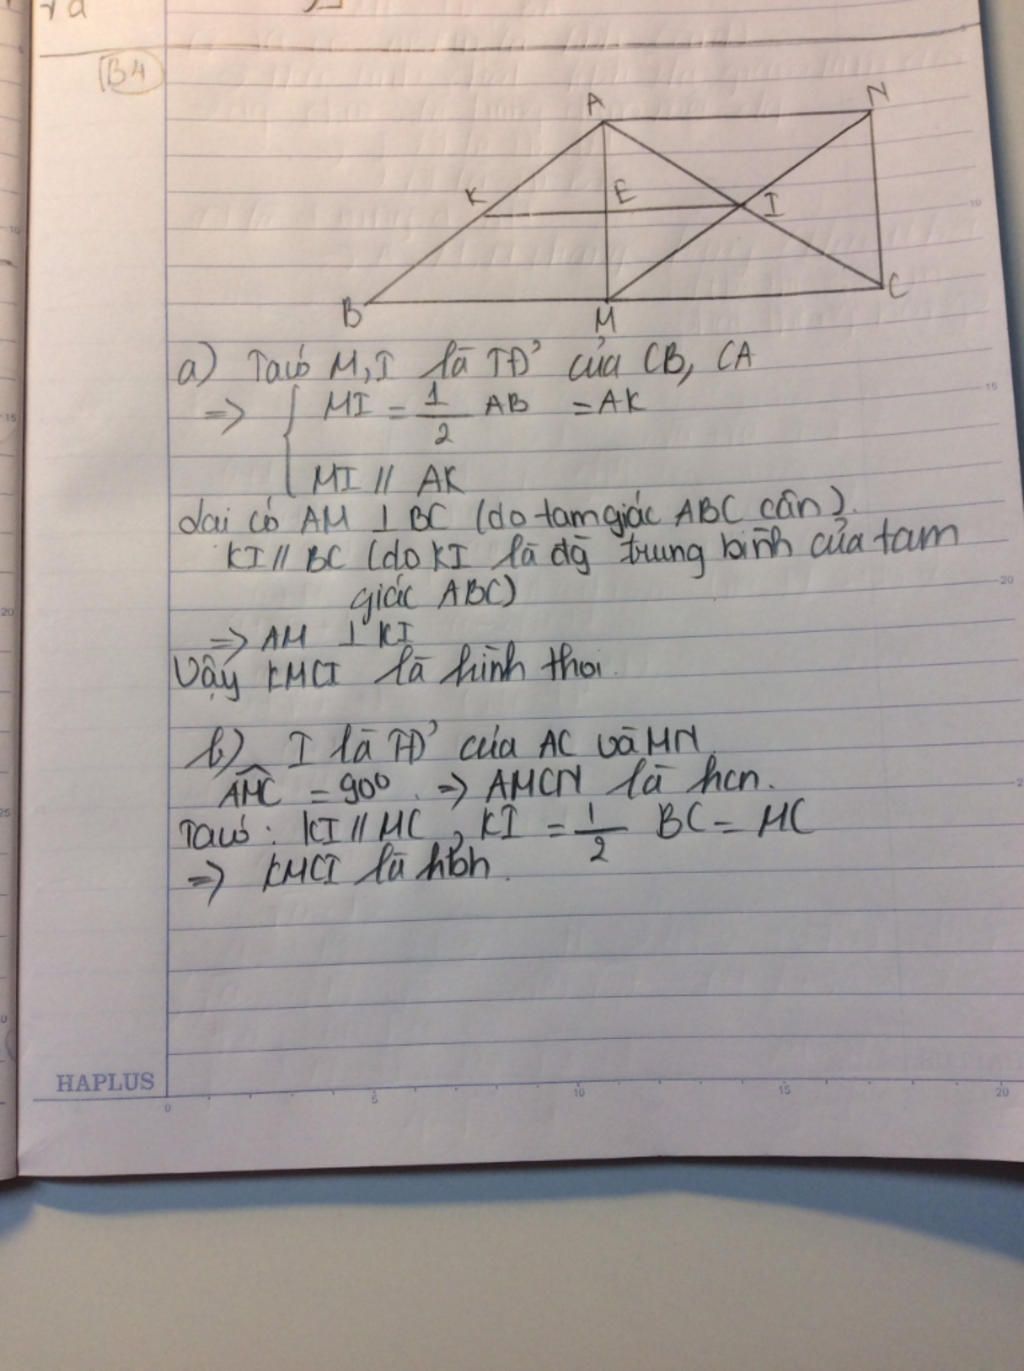 B4
A
N
K
E
I
B
M
C
a) Ta có M, I là TĐ' của CB, CA
=> { MI = 1/2 AB = AK
MI // AK
lại có AM ⊥ BC (do tam giác ABC cân).
KI // BC (do KI là đg trung bình của tam
giác ABC)
=> AM ⊥ KI
Vậy KMCI là hình thoi.
b) I là TĐ' của AC và MN.
AMC = 90° . => AMCN là hcn.
Ta có: KI // MC, KI = 1/2 BC = MC
=> KMCI là hbh.
HAPLUS
0 5 10 15 20